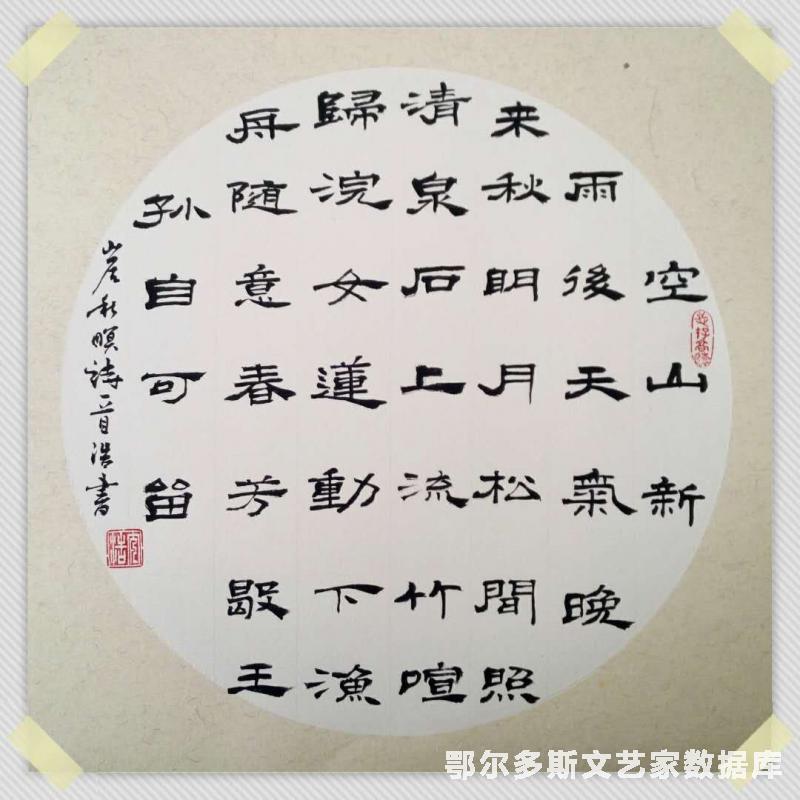 空山新
雨後天氣晚
来秋明月松間照
清泉石上流竹喧
歸浣女蓮動下漁
舟随意春芳歇王
孙自可留
山居秋暝詩一首浩書
鄂尔多斯文艺家数据库